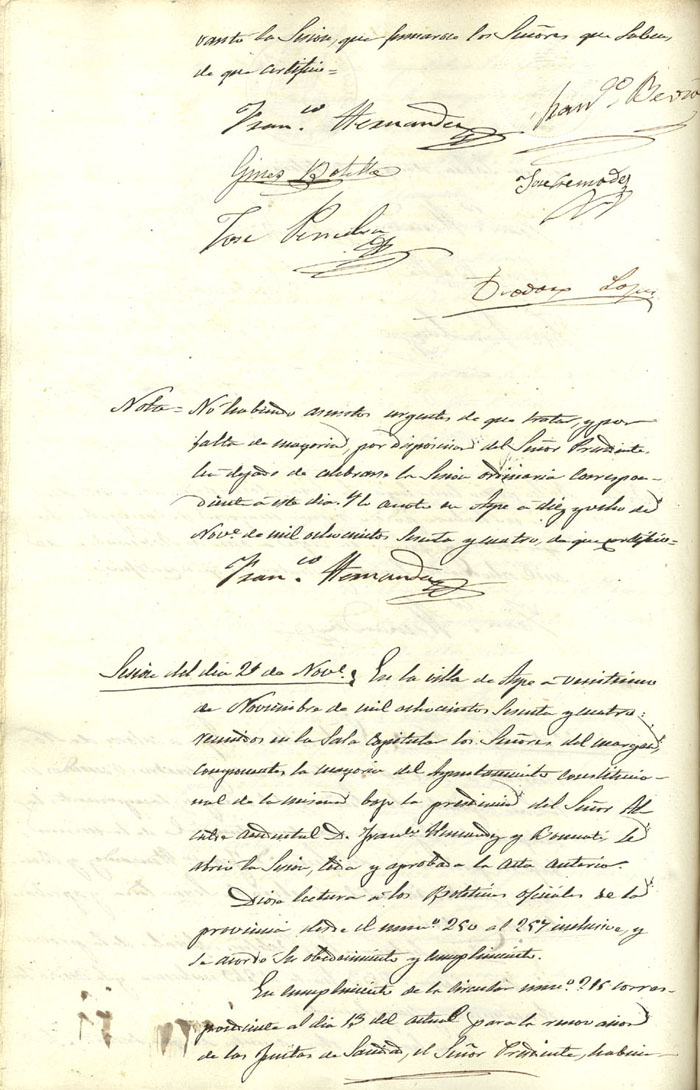 vanto la Sesion, que firmaron los Señores que Saben,
de que certifico=
Fran.co Hernandez
Fran.co
Gines Botella
Jose Cremades
Jose
Teodoro Lopez
Nota= No habiendo asuntos urgentes de que tratar, y por
falta de mayoria, por disposicion del Señor Presidente
ha dejado de celebrarse la Sesion ordinaria correspon-
diente á este dia. Y lo anoto en Aspe á diez y ocho de
Nov.e de mil ochocientos Sesenta y cuatro, de que certifico=
Fran.co Hernandez
Sesion del dia 21 de Nov.e En la villa de Aspe á veintiuno
de Noviembre de mil ochocientos Sesenta y cuatro:
reunidos en la Sala Capitular los Señores del margen,
componentes la mayoria del Ayuntamiento constitucio-
nal de la misma bajo la presidencia del Señor Al-
calde accidental D. Fran.co Hernandez y se
abrio la Sesion, leida y aprobada la acta anterior.
Diose lectura á los Boletines oficiales de la
provincia desde el num.o 250 al 257 inclusive, y
se acordo Su obedecimiento y cumplimiento.
En cumplimiento de la circular num.o 216 corres-
pondiente al dia 13 del actual para la renovacion
de las Juntas de Sanidad, el Señor Presidente, habien-